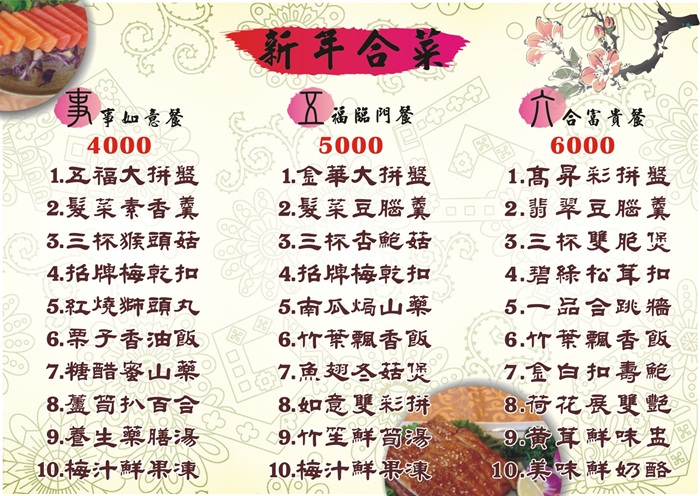 新年合菜
事事如意餐
4000
1.五福大拼盤
2.髮菜素香羹
3.三杯猴頭菇
4.招牌梅乾扣
5.紅燒獅頭丸
6.栗子香油飯
7.糖醋蜜山藥
8.蘆筍扒百合
9.養生藥膳湯
10.梅汁鮮果凍
五福臨門餐
5000
1.金華大拼盤
2.髮菜豆腦羹
3.三杯杏鮑菇
4.招牌梅乾扣
5.南瓜焗山藥
6.竹葉飄香飯
7.魚翅冬菇煲
8.如意雙彩拼
9.竹笙鮮筍湯
10.梅汁鮮果凍
六合富貴餐
6000
1.高昇彩拼盤
2.翡翠豆腦羹
3.三杯雙脆煲
4.碧綠松茸扣
5.一品合跳牆
6.竹葉飄香飯
7.金白扣壽鮑
8.荷花展雙艷
9.黃茸鮮味盅
10.美味鮮奶酪